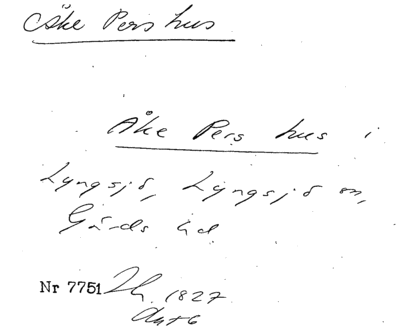 Åke Pers hus
Åke Pers hus i
Lyngsjö, Lyngsjö sn,
Gärds hd
Nr 7751 1827